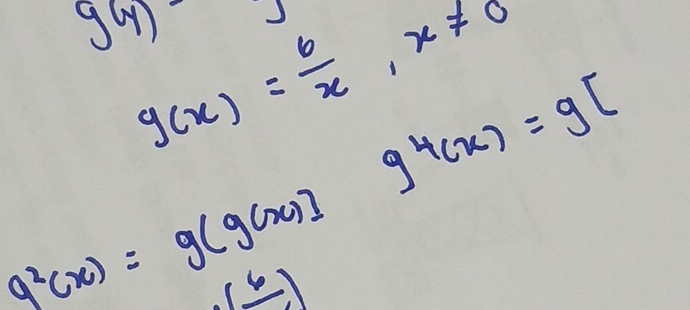 g(4)
g(x) = 6/x , x ≠ 0
g⁴(x) = g[
g²(x) = g[g(x)]
(6/